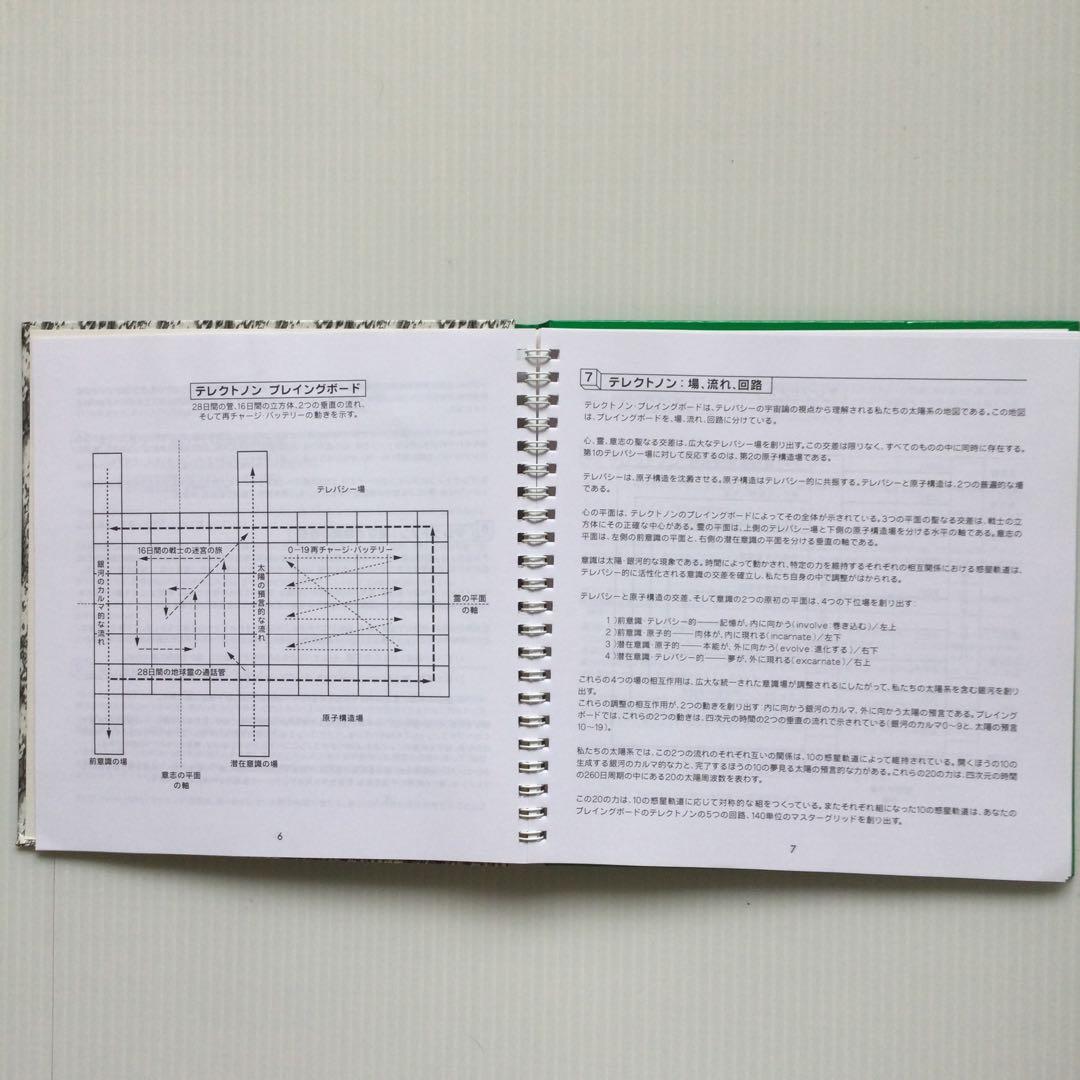 テレクトノン プレイングボード
28日間の管、16日間の立方体、2つの垂直の流れ、
そして再チャージ・バッテリーの動きを示す。
テレパシー場
16日間の戦士の迷宮の旅
0–19再チャージ・バッテリー
銀河のカルマ的な流れ
太陽の預言的な流れ
霊の平面
の軸
28日間の地球霊の通話管
原子構造場
前意識の場
意志の平面
の軸
潜在意識の場
6
7 テレクトノン：場、流れ、回路
テレクトノン・プレイングボードは、テレパシーの宇宙論の視点から理解される私たちの太陽系の地図である。この地図
は、プレイングボードを、場、流れ、回路に分けている。
心、霊、意志の聖なる交差は、広大なテレパシー場を創り出す。この交差は限りなく、すべてのものの中に同時に存在する。
第1のテレパシー場に対して反応するのは、第2の原子構造場である。
テレパシーは、原子構造を沈澱させる。原子構造はテレパシー的に共振する。テレパシーと原子構造は、2つの普遍的な場
である。
心の平面は、テレクトノンのプレイングボードによってその全体が示されている。3つの平面の聖なる交差は、戦士の立
方体にその正確な中心がある。霊の平面は、上側のテレパシー場と下側の原子構造場を分ける水平の軸である。意志の
平面は、左側の前意識の平面と、右側の潜在意識の平面を分ける垂直の軸である。
意識は太陽・銀河的な現象である。時間によって動かされ、特定の力を維持するそれぞれの相互関係における惑星軌道は、
テレパシー的に活性化される意識の交差を確立し、私たち自身の中で調整がはかられる。
テレパシーと原子構造の交差、そして意識の2つの原初の平面は、4つの下位場を創り出す：
1）前意識・テレパシー的――記憶が、内に向かう（involve：巻き込む）／左上
2）前意識・原子的――肉体が、内に現れる（incarnate）／左下
3）潜在意識・原子的――本能が、外に向かう（evolve：進化する）／右下
4）潜在意識・テレパシー的――夢が、外に現れる（excarnate）／右上
これらの4つの場の相互作用は、広大な統一された意識場が調整されるにしたがって、私たちの太陽系を含む銀河を創り
出す。
これらの調整の相互作用が、2つの動きを創り出す：内に向かう銀河のカルマ、外に向かう太陽の預言である。プレイング
ボードでは、これらの2つの動きは、四次元の時間の2つの垂直の流れで示されている（銀河のカルマ0〜9と、太陽の預言
10〜19）。
私たちの太陽系では、この2つの流れのそれぞれ互いの関係は、10の惑星軌道によって維持されている。開くほうの10の
生成する銀河のカルマ的な力と、完了するほうの10の夢見る太陽の預言的な力がある。これらの20の力は、四次元の時間
の260日周期の中にある20の太陽周波数を表わす。
この20の力は、10の惑星軌道に応じて対称的な組をつくっている。またそれぞれ組になった10の惑星軌道は、あなたの
プレイングボードのテレクトノンの5つの回路、140単位のマスターグリッドを創り出す。
7